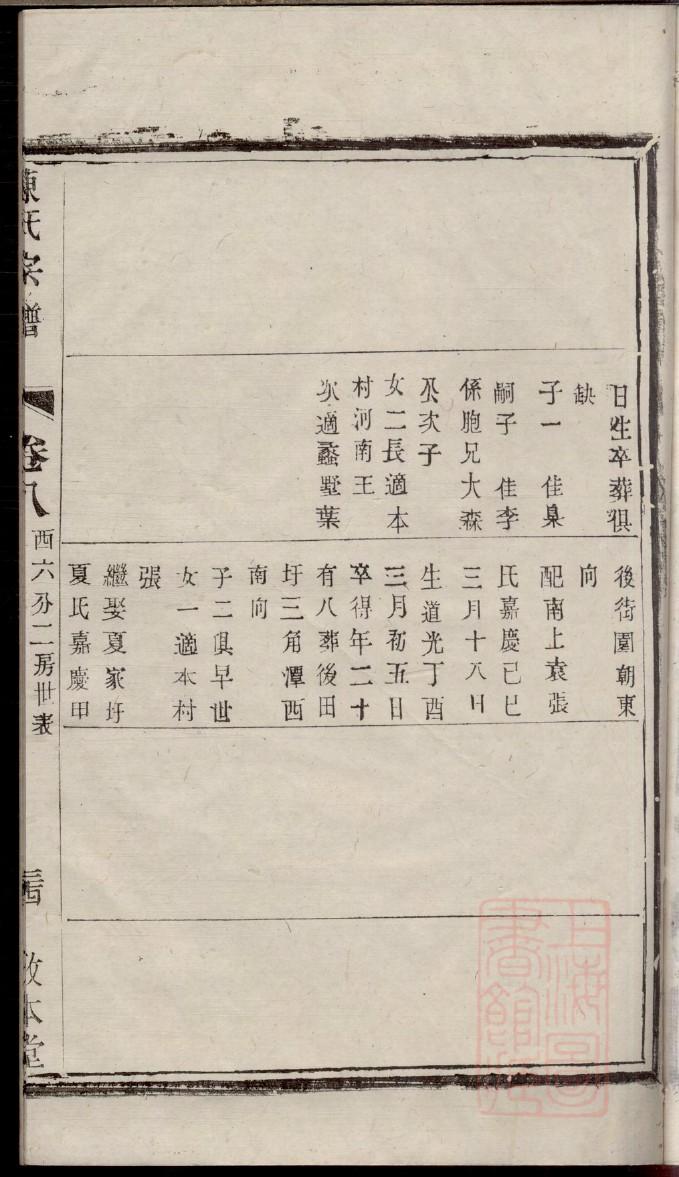 日生卒葬俱
缺
子一 佳臬
嗣子 佳李
係胞兄大森
公次子
女二長適本
村河南王
次適蠡墅葉
後街園朝東
向
配南上袁張
氏嘉慶己巳
三月十八日
生道光丁酉
三月初五日
卒得年二十
有八葬後田
圩三角潭西
南向
子二俱早世
女一適本村
張
繼娶夏家圩
夏氏嘉慶甲
陳氏宗譜
卷八
西六分二房世表
敦本堂
上海圖書館藏